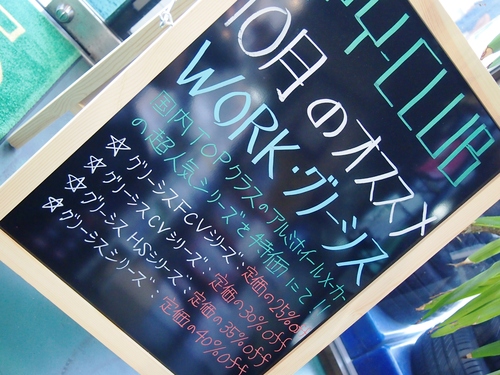 Y-CLUB
10月のオススメ
WORK・グリーシス
国内TOPクラスのアルミホイールメーカー
の超人気シリーズを特価にて!
☆グリーシスFCVシリーズ:定価の25%off
☆グリーシスCVシリーズ:定価の30%off
☆グリーシスHSシリーズ:定価の35%off
☆グリーシスシリーズ:定価の40%off